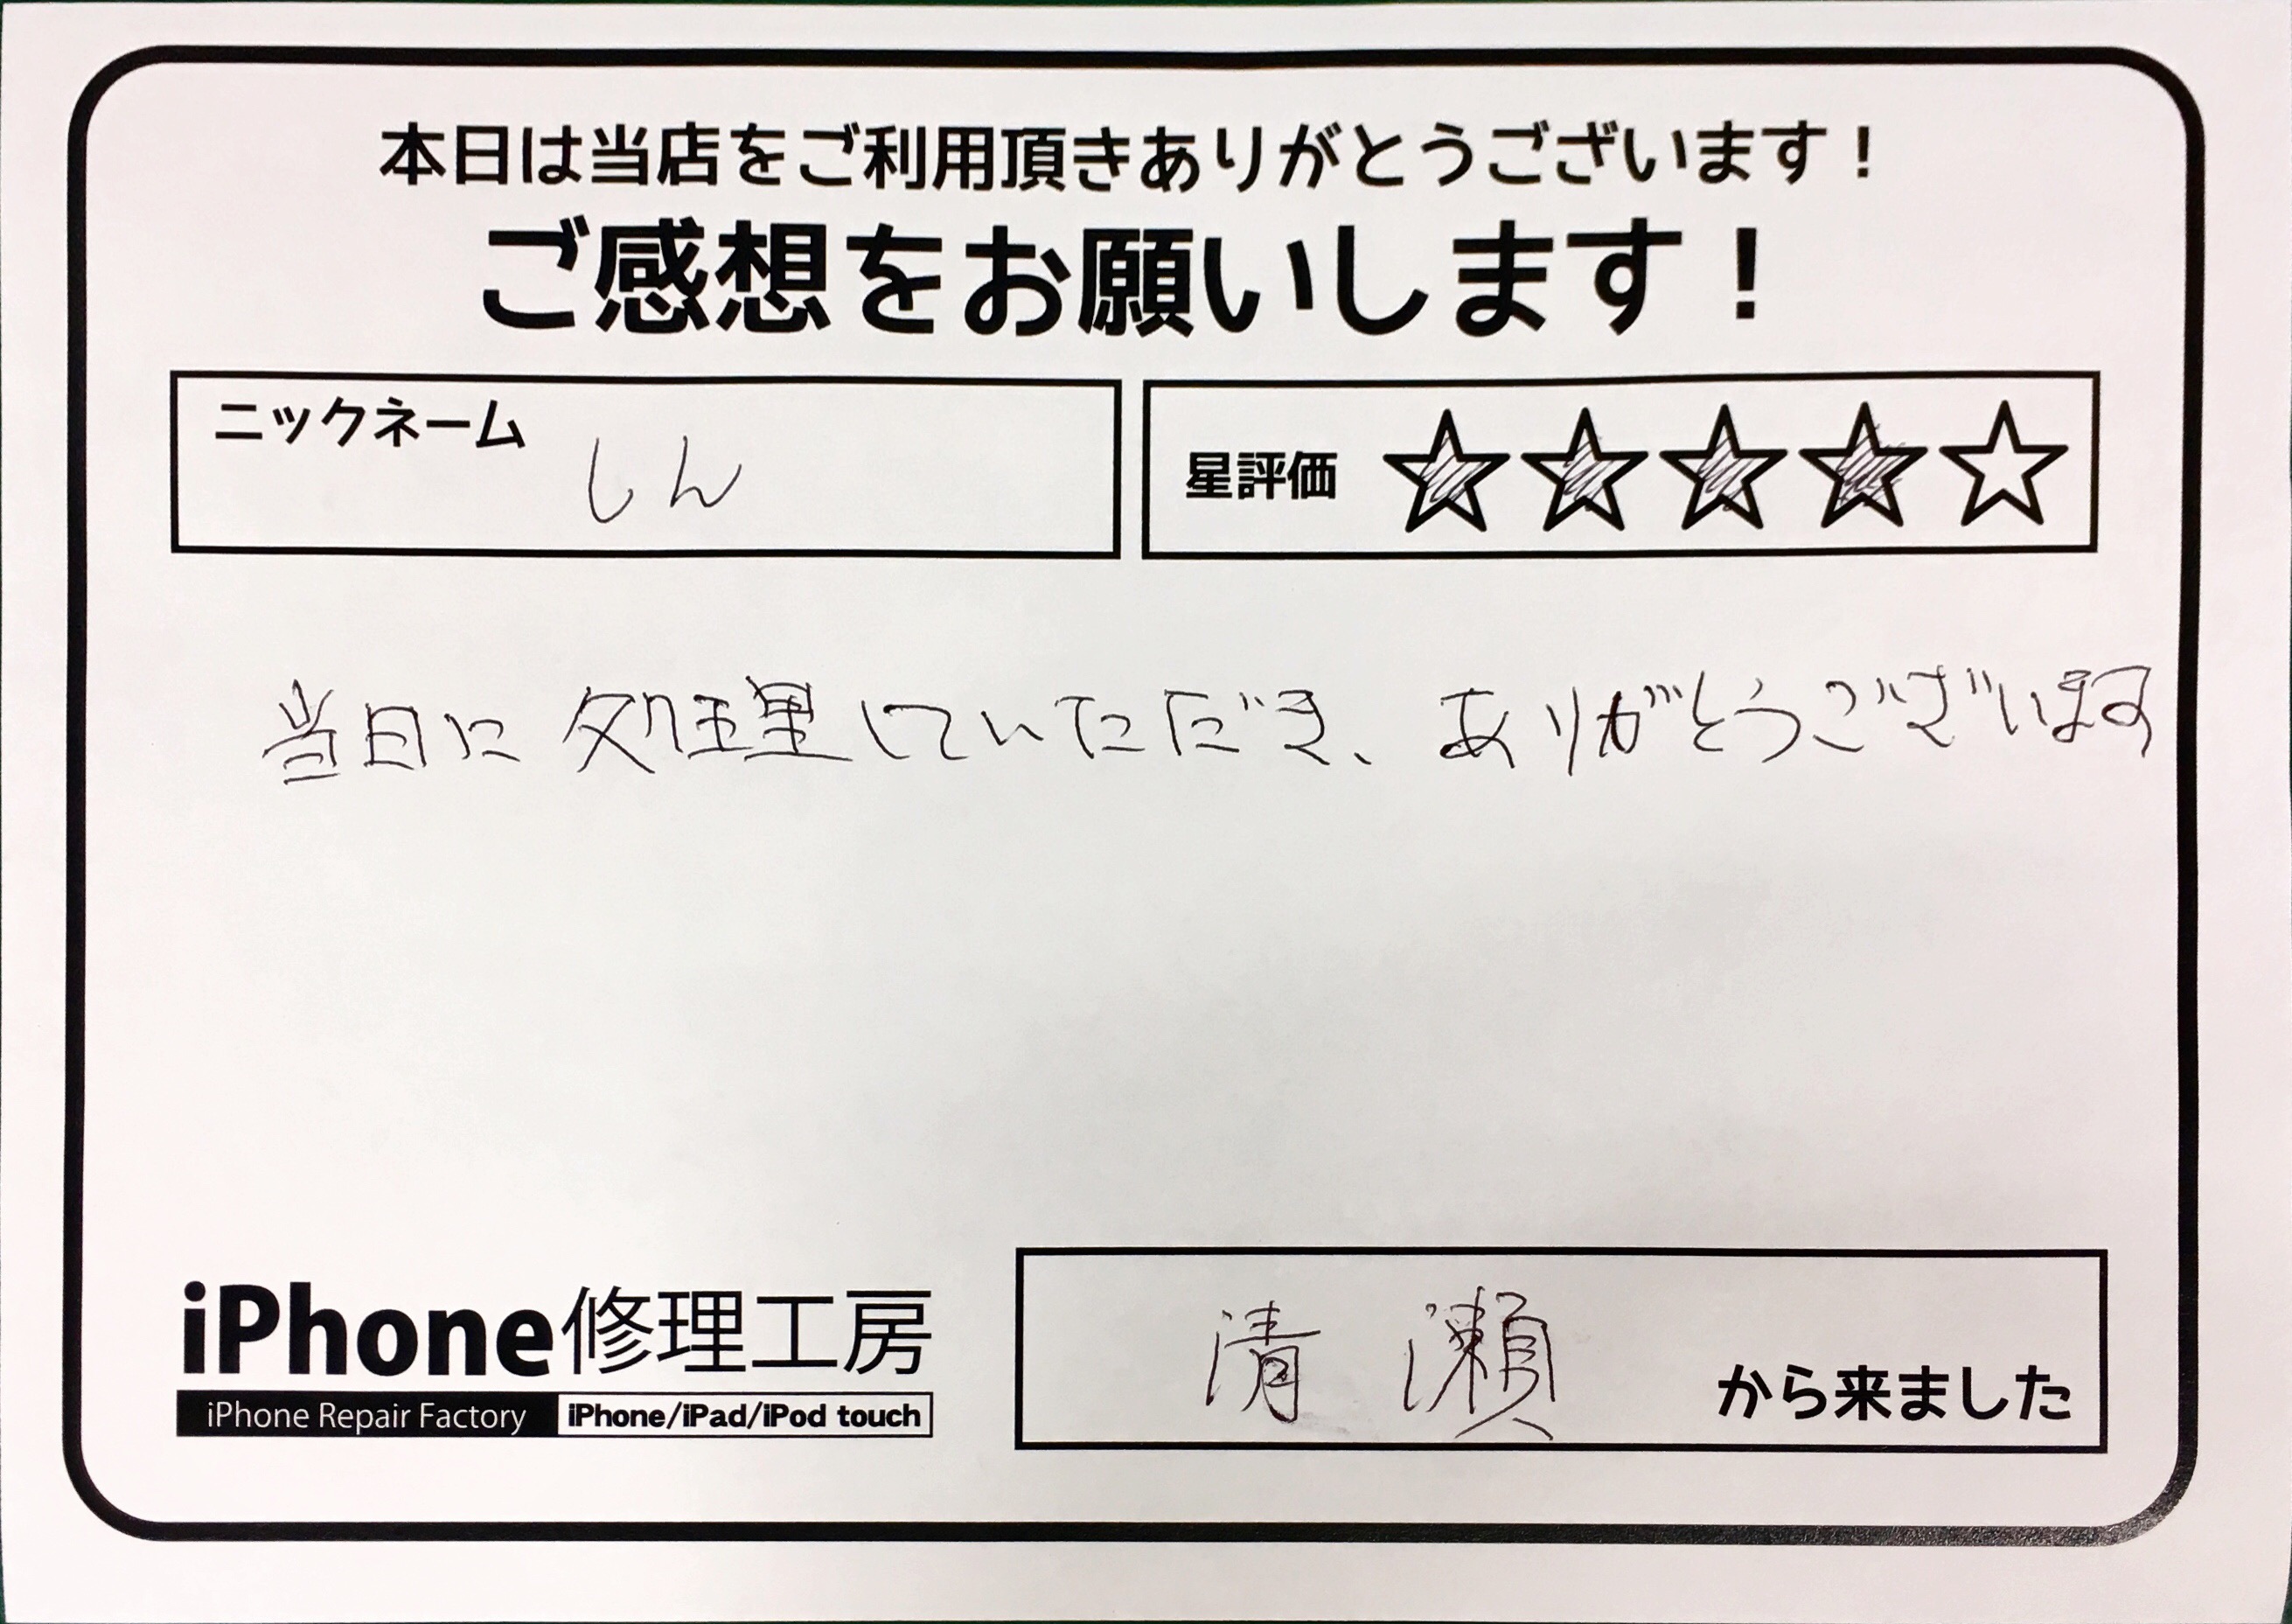 本日は当店をご利用頂きありがとうございます！
ご感想をお願いします！
ニックネーム しん
星評価 ★★★★☆
当日に処理していただき、ありがとうございます
iPhone修理工房
iPhone Repair Factory iPhone/iPad/iPod touch
清瀬 から来ました